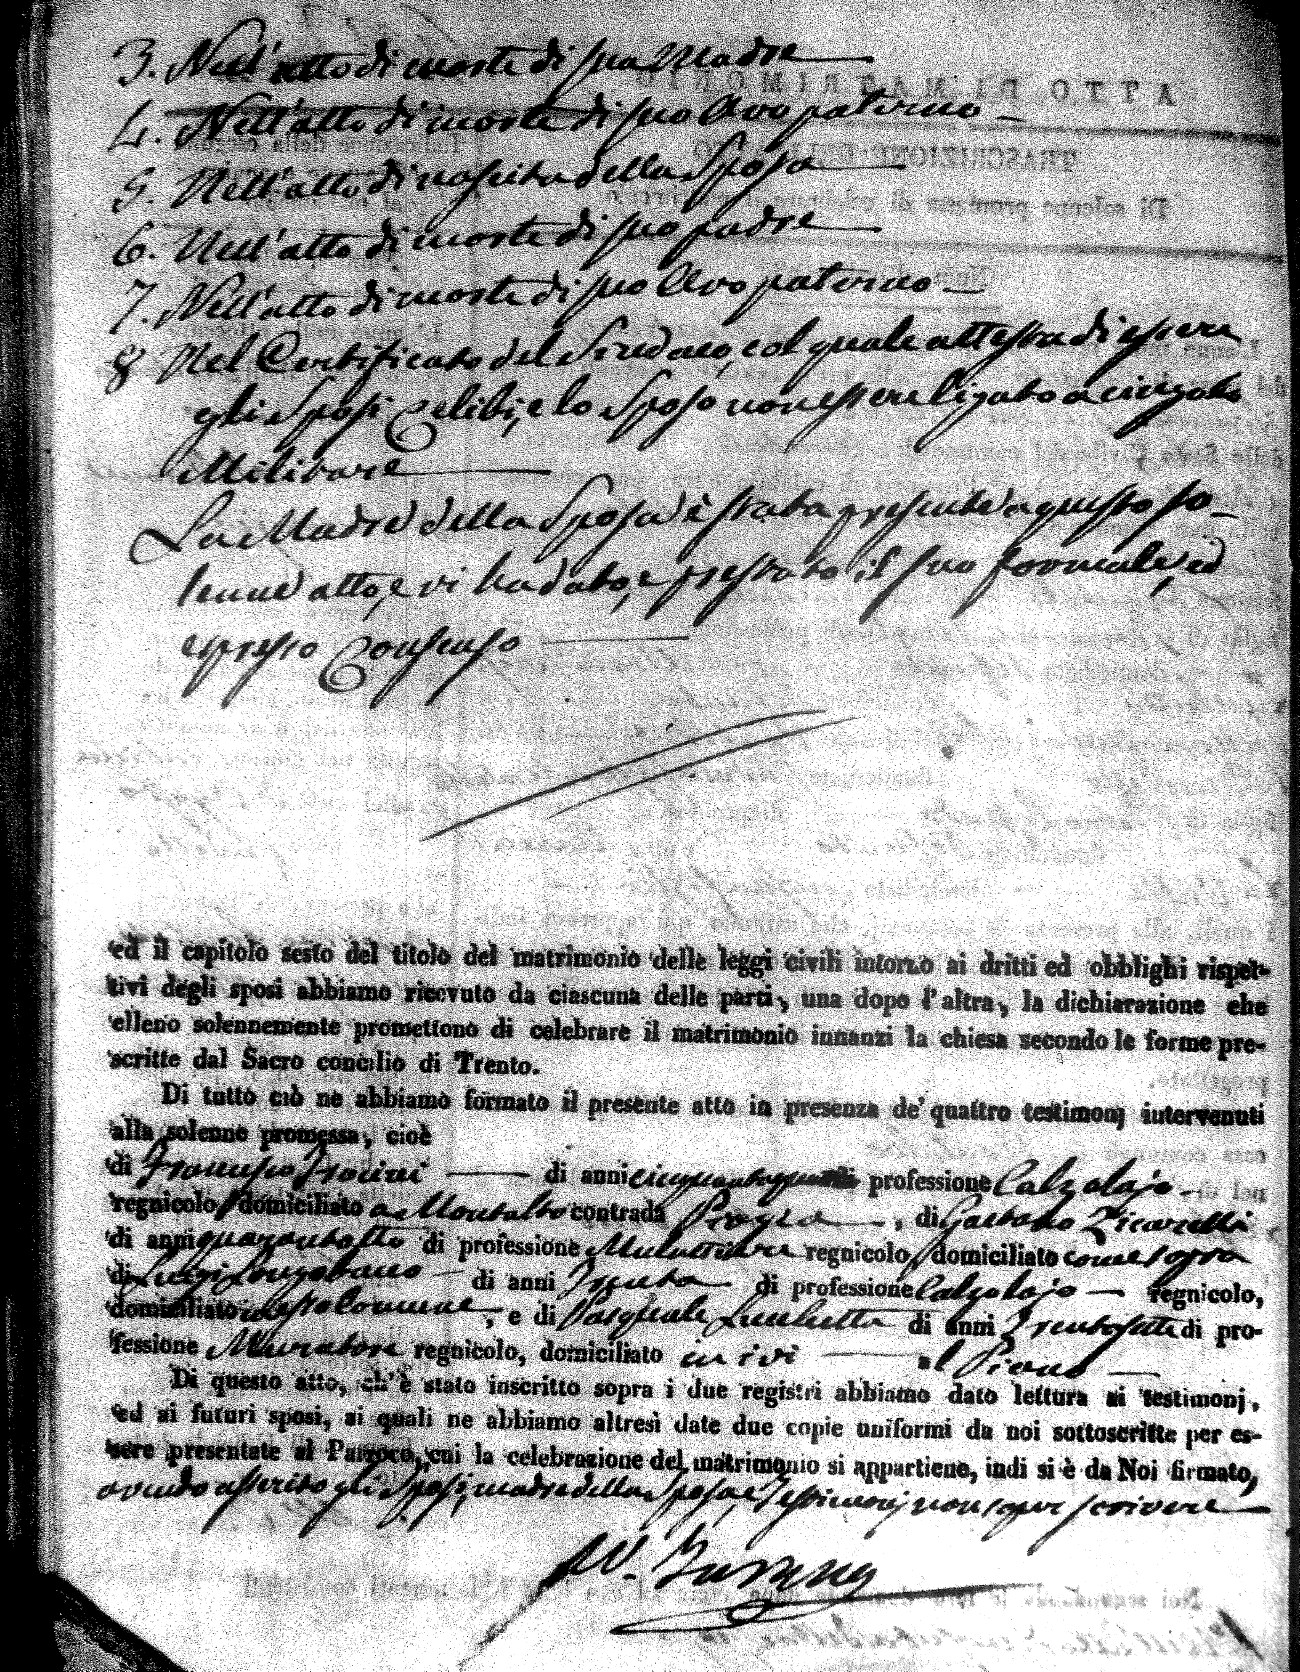 3. Nell'atto di morte di sua Madre
4. Nell'atto di morte di suo Avo paterno
5. Nell'atto di nascita della Sposa
6. Nell'atto di morte di suo padre
7. Nell'atto di morte di suo Avo paterno
8 Nel Certificato del Sindaco, col quale attesta di essere
gli Sposi Celibi, e lo Sposo non essere ligato a cingolo
Militare
La Madre della Sposa è stata presente a questo so-
lenne atto, e vi ha dato, e prestato il suo formale, ed
espresso Consenso
ed il capitolo sesto del titolo del matrimonio delle leggi civili intorno ai dritti ed obblighi rispet-
tivi degli sposi abbiamo ricevuto da ciascuna delle parti, una dopo l'altra, la dichiarazione che
elleno solennemente promettono di celebrare il matrimonio innanzi la chiesa secondo le forme pre-
scritte dal Sacro concilio di Trento.
Di tutto ciò ne abbiamo formato il presente atto in presenza de' quattro testimonj intervenuti
alla solenne promessa, cioè
di Francesco di anni professione Calzolajo
regnicolo, domiciliato a Montalto contrada , di Gaetano Zicarelli
di anni quarantotto di professione Mulattiere regnicolo, domiciliato come sopra
di Luigi Longobardo di anni Trenta di professione Calzolajo regnicolo,
domiciliato in esso Comune, e di Pasquale Luchetta di anni Trentasette di pro-
fessione Muratore regnicolo, domiciliato in ivi al Piano
Di questo atto, ch'è stato inscritto sopra i due registri abbiamo dato lettura ai testimonj,
ed ai futuri sposi, ai quali ne abbiamo altresì date due copie uniformi da noi sottoscritte per es-
sere presentate al Parroco, cui la celebrazione del matrimonio si appartiene, indi si è da Noi firmato,
avendo asserito gli Sposi, madre della Sposa, e Testimonj non saper scrivere